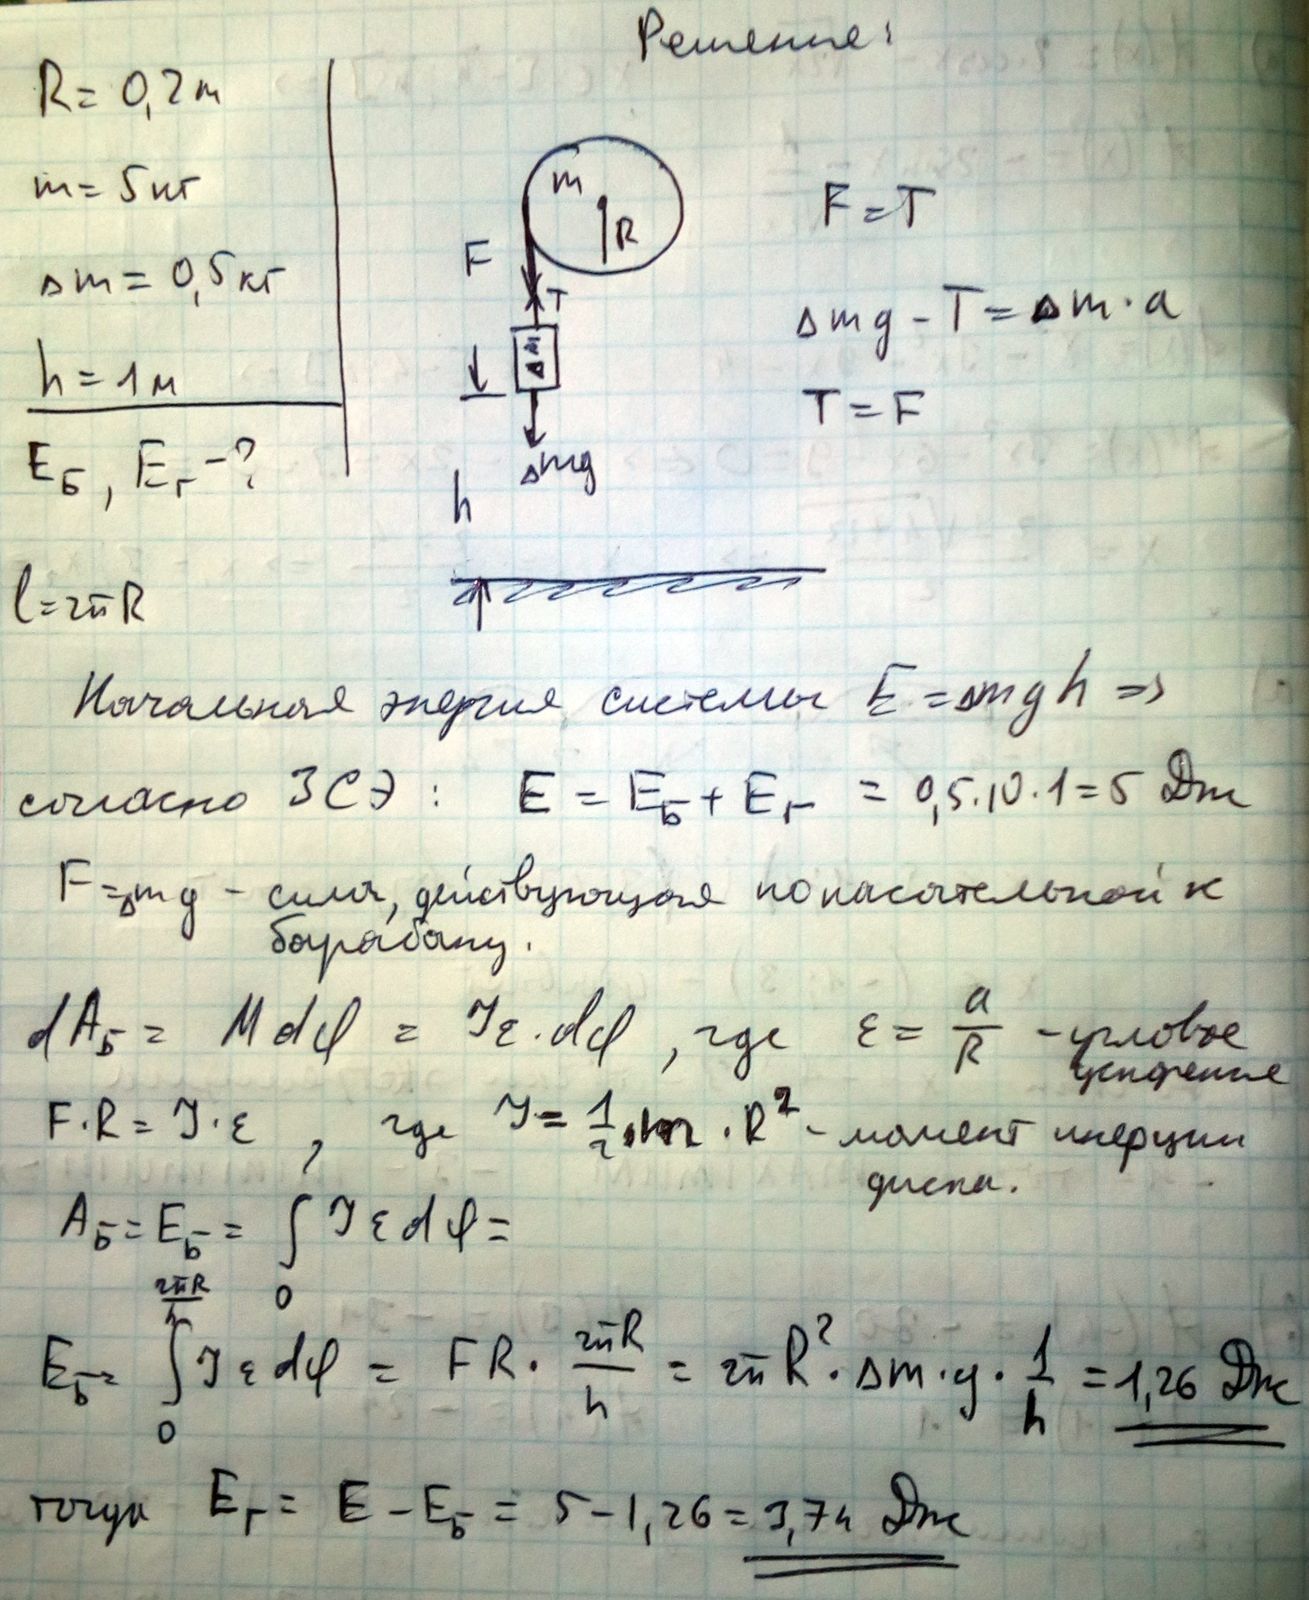 Решение:
R = 0,2 м
m = 5 кг
Δm = 0,5 кг
h = 1 м
E_Б, E_г - ?
l = 2πR
m
R
F
T
Δm
Δmg
h
F = T
Δmg - T = Δm · a
T = F
Начальная энергия системы E = Δmgh =>
согласно ЗСЭ: E = E_Б + E_г = 0,5·10·1 = 5 Дж
F = Δmg - сила, действующая по касательной к
барабану.
dA_Б = Mdφ = Jε·dφ, где ε = a/R - угловое
ускорение
F·R = J·ε, где J = 1/2 m·R² - момент инерции
диска.
A_Б = E_Б = ∫₀ Jεdφ =
E_Б = ∫₀^(2πR/h) Jεdφ = FR · 2πR/h = 2πR² · Δm·g · 1/h = 1,26 Дж
тогда E_г = E - E_Б = 5 - 1,26 = 3,74 Дж